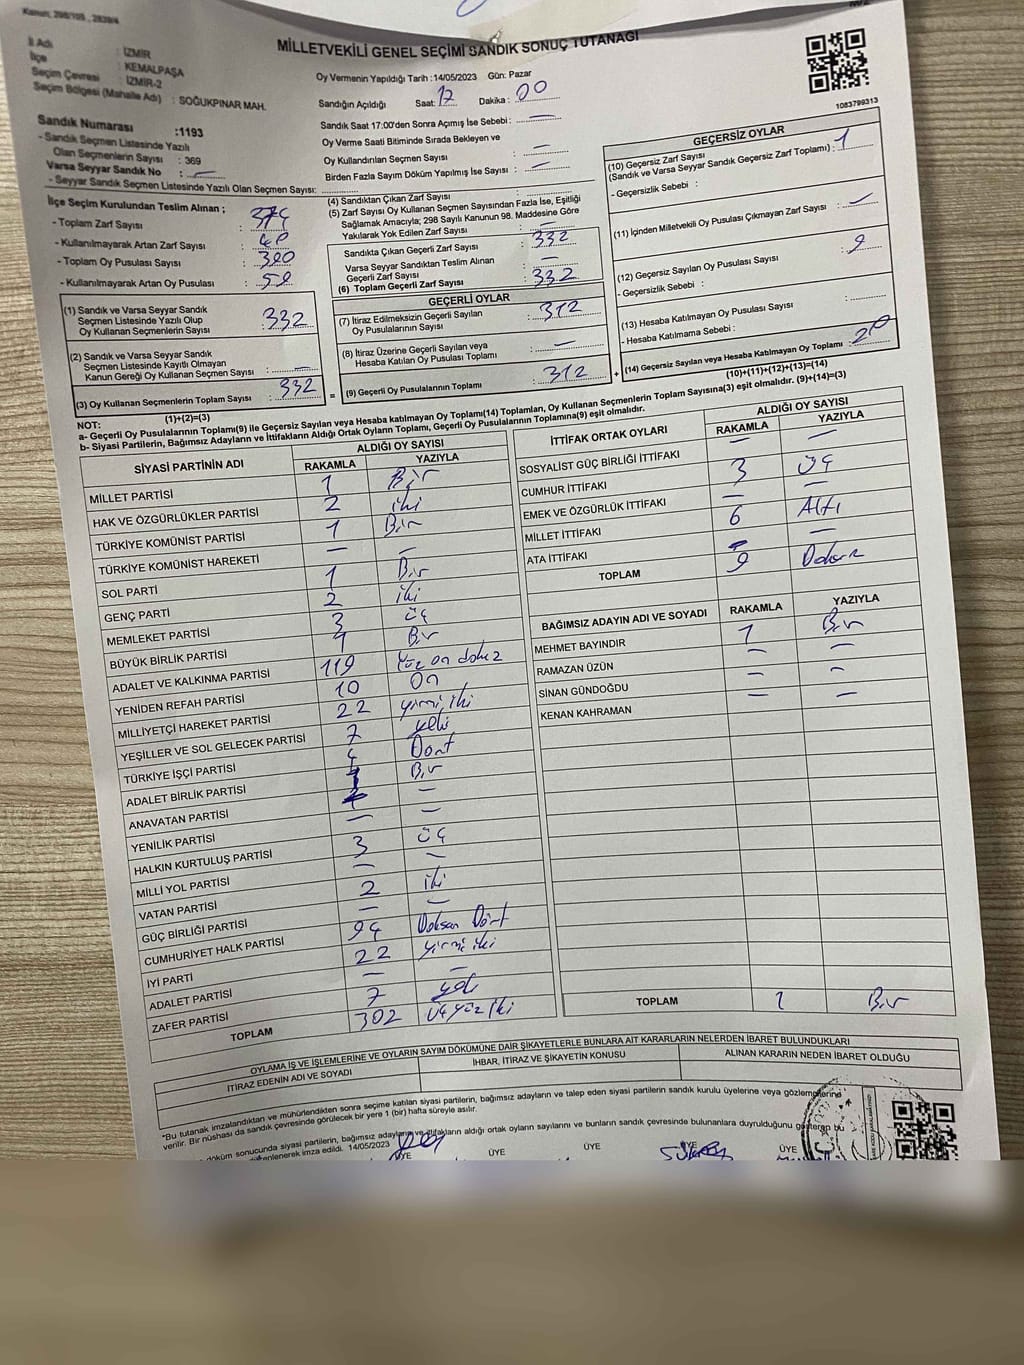 Kanun, 298/105 , 2839/4
MİLLETVEKİLİ GENEL SEÇİMİ SANDIK SONUÇ TUTANAĞI
İl Adı : İZMİR
İlçe : KEMALPAŞA
Seçim Çevresi : İZMİR-2
Seçim Bölgesi (Mahalle Adı) : SOĞUKPINAR MAH.
Oy Vermenin Yapıldığı Tarih :14/05/2023 Gün: Pazar
Sandığın Açıldığı Saat: 17 Dakika : 00
Sandık Saat 17:00'den Sonra Açımış İse Sebebi : —
Oy Verme Saati Bitiminde Sırada Bekleyen ve
Oy Kullandırılan Seçmen Sayısı : —
Birden Fazla Sayım Döküm Yapılmış İse Sayısı : —
1083799313
Sandık Numarası :1193
- Sandık Seçmen Listesinde Yazılı
Olan Seçmenlerin Sayısı : 369
Varsa Seyyar Sandık No : —
- Seyyar Sandık Seçmen Listesinde Yazılı Olan Seçmen Sayısı:
İlçe Seçim Kurulundan Teslim Alınan ;
- Toplam Zarf Sayısı : 374
- Kullanılmayarak Artan Zarf Sayısı :
- Toplam Oy Pusulası Sayısı : 380
- Kullanılmayarak Artan Oy Pusulası :
(1) Sandık ve Varsa Seyyar Sandık
Seçmen Listesinde Yazılı Olup
Oy Kullanan Seçmenlerin Sayısı : 332
(2) Sandık ve Varsa Seyyar Sandık
Seçmen Listesinde Kayıtlı Olmayan
Kanun Gereği Oy Kullanan Seçmen Sayısı : —
(3) Oy Kullanan Seçmenlerin Toplam Sayısı : 332
(1)+(2)=(3)
(4) Sandıktan Çıkan Zarf Sayısı
(5) Zarf Sayısı Oy Kullanan Seçmen Sayısından Fazla İse, Eşitliği
Sağlamak Amacıyla; 298 Sayılı Kanunun 98. Maddesine Göre
Yakılarak Yok Edilen Zarf Sayısı : —
Sandıkta Çıkan Geçerli Zarf Sayısı : 332
Varsa Seyyar Sandıktan Teslim Alınan
Geçerli Zarf Sayısı : —
(6) Toplam Geçerli Zarf Sayısı : 332
GEÇERLİ OYLAR
(7) İtiraz Edilmeksizin Geçerli Sayılan
Oy Pusulalarının Sayısı : 312
(8) İtiraz Üzerine Geçerli Sayılan veya
Hesaba Katılan Oy Pusulası Toplamı : —
= (9) Geçerli Oy Pusulalarının Toplamı : 312
GEÇERSİZ OYLAR
(10) Geçersiz Zarf Sayısı
(Sandık ve Varsa Seyyar Sandık Geçersiz Zarf Toplamı) : 1
- Geçersizlik Sebebi :
(11) İçinden Milletvekili Oy Pusulası Çıkmayan Zarf Sayısı : —
(12) Geçersiz Sayılan Oy Pusulası Sayısı :
- Geçersizlik Sebebi :
(13) Hesaba Katılmayan Oy Pusulası Sayısı :
- Hesaba Katılmama Sebebi :
+ (14) Geçersiz Sayılan veya Hesaba Katılmayan Oy Toplamı : 20
(10)+(11)+(12)+(13)=(14)
NOT:
a- Geçerli Oy Pusulalarının Toplamı(9) ile Geçersiz Sayılan veya Hesaba katılmayan Oy Toplamı(14) Toplamları, Oy Kullanan Seçmenlerin Toplam Sayısına(3) eşit olmalıdır. (9)+(14)=(3)
b- Siyasi Partilerin, Bağımsız Adayların ve İttifakların Aldığı Ortak Oyların Toplamı, Geçerli Oy Pusulalarının Toplamına(9) eşit olmalıdır.
SİYASİ PARTİNİN ADI ALDIĞI OY SAYISI
RAKAMLA YAZIYLA
MİLLET PARTİSİ 1 Bir
HAK VE ÖZGÜRLÜKLER PARTİSİ 2 iki
TÜRKİYE KOMÜNİST PARTİSİ 1 Bir
TÜRKİYE KOMÜNİST HAREKETİ — —
SOL PARTİ 1 Bir
GENÇ PARTİ 2 iki
MEMLEKET PARTİSİ 3 üç
BÜYÜK BİRLİK PARTİSİ 1 Bir
ADALET VE KALKINMA PARTİSİ 119 Yüz on dokuz
YENİDEN REFAH PARTİSİ 10 On
MİLLİYETÇİ HAREKET PARTİSİ 22 yirmi iki
YEŞİLLER VE SOL GELECEK PARTİSİ 7 yedi
TÜRKİYE İŞÇİ PARTİSİ 4 Dört
ADALET BİRLİK PARTİSİ 1 Bir
ANAVATAN PARTİSİ —
YENİLİK PARTİSİ — —
HALKIN KURTULUŞ PARTİSİ 3 üç
MİLLİ YOL PARTİSİ — —
VATAN PARTİSİ 2 iki
GÜÇ BİRLİĞİ PARTİSİ — —
CUMHURİYET HALK PARTİSİ 94 Doksan Dört
İYİ PARTİ 22 yirmi iki
ADALET PARTİSİ — —
ZAFER PARTİSİ 7 yedi
TOPLAM 302 üçyüz iki
İTTİFAK ORTAK OYLARI ALDIĞI OY SAYISI
RAKAMLA YAZIYLA
SOSYALİST GÜÇ BİRLİĞİ İTTİFAKI — —
CUMHUR İTTİFAKI 3 üç
EMEK VE ÖZGÜRLÜK İTTİFAKI — —
MİLLET İTTİFAKI 6 Altı
ATA İTTİFAKI — —
TOPLAM 9 Dokuz
BAĞIMSIZ ADAYIN ADI VE SOYADI RAKAMLA YAZIYLA
MEHMET BAYINDIR 1 Bir
RAMAZAN ÜZÜN — —
SİNAN GÜNDOĞDU — —
KENAN KAHRAMAN — —
TOPLAM 1 Bir
OYLAMA İŞ VE İŞLEMLERİNE VE OYLARIN SAYIM DÖKÜMÜNE DAİR ŞİKAYETLERLE BUNLARA AİT KARARLARIN NELERDEN İBARET BULUNDUKLARI
İTİRAZ EDENİN ADI VE SOYADI İHBAR, İTİRAZ VE ŞİKAYETİN KONUSU ALINAN KARARIN NEDEN İBARET OLDUĞU
*Bu tutanak imzalandıktan ve mühürlendikten sonra seçime katılan siyasi partilerin, bağımsız adayların ve talep eden siyasi partilerin sandık kurulu üyelerine veya gözlemcilerine
verilir. Bir nüshası da sandık çevresinde görülecek bir yere 1 (bir) hafta süreyle asılır.
döküm sonucunda siyasi partilerin, bağımsız adayların ve ittifakların aldığı ortak oyların sayılarını ve bunların sandık çevresinde bulunanlara duyrulduğunu gösteren bu
düzenlenerek imza edildi. 14/05/2023
ÜYE ÜYE ÜYE ÜYE ÜYE